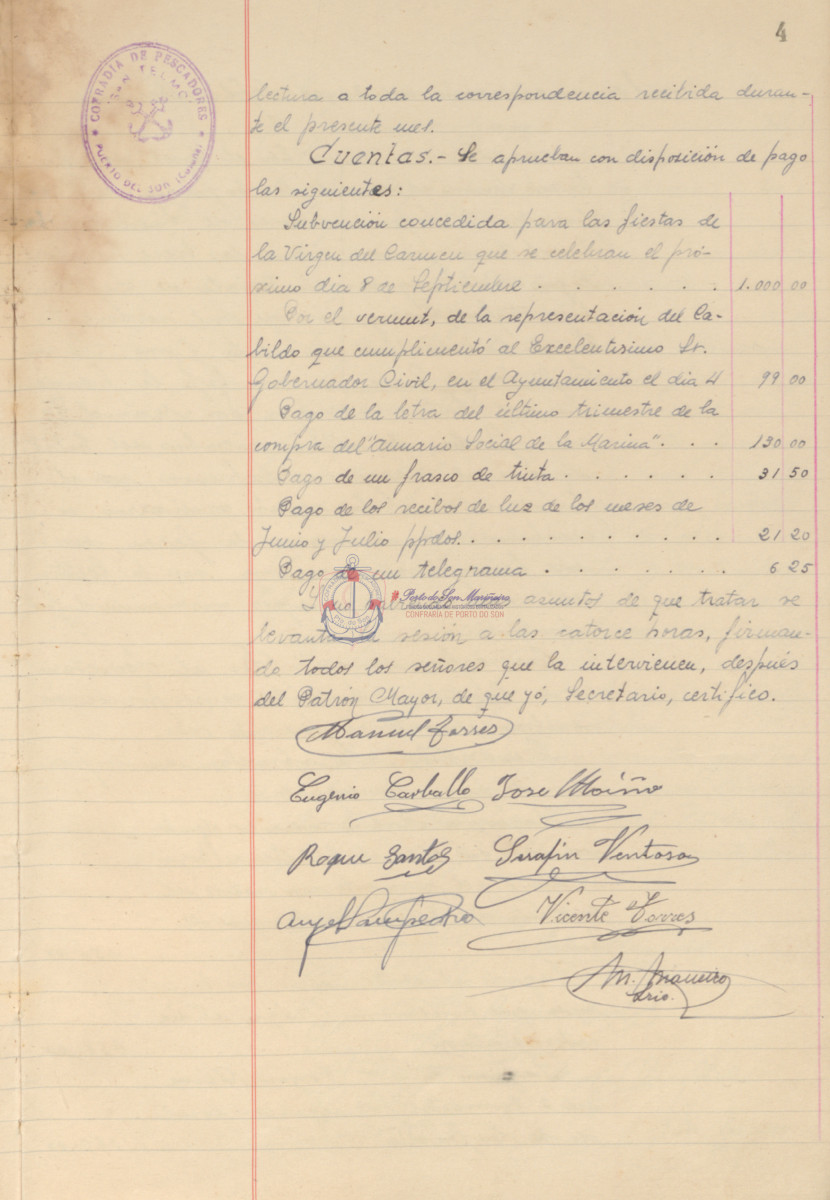 4
COFRADIA DE PESCADORES
SAN TELMO
PUERTO DEL SON (Coruña)
lectura a toda la correspondencia recibida duran-
te el presente mes.
Cuentas.- Se aprueban con disposición de pago
las siguientes:
Subvención concedida para las fiestas de
la Virgen del Carmen que se celebran el pró-
ximo dia 8 de Septiembre . . . . . . 1.000 00
Por el vermut, de la representación del Ca-
bildo que cumplimentó al Excelentisimo Sr.
Gobernador Civil, en el Ayuntamiento el dia 4 99 00
Pago de la letra del último trimestre de la
compra del "Anuario Social de la Marina". . . 130 00
Pago de un frasco de tinta . . . . . . 31 50
Pago de los recibos de luz de los meses de
Junio y Julio ppdos. . . . . . . . . . . 21 20
Pago de un telegrama . . . . . . . 6 25
Y no asuntos de que tratar se
levanta sesión a las catorce horas, firman-
do todos los señores que la intervienen, después
del Patrón Mayor, de que yó, Secretario, certifico.
Porto do Son Mariñeiro
CONFRARIA DE PORTO DO SON
Manuel Torres
Eugenio Carballo Jose Moiño
Roque Santos Serafin Ventoso
Angel Sampedro Vicente Torres
M. Maneiro
Srio.